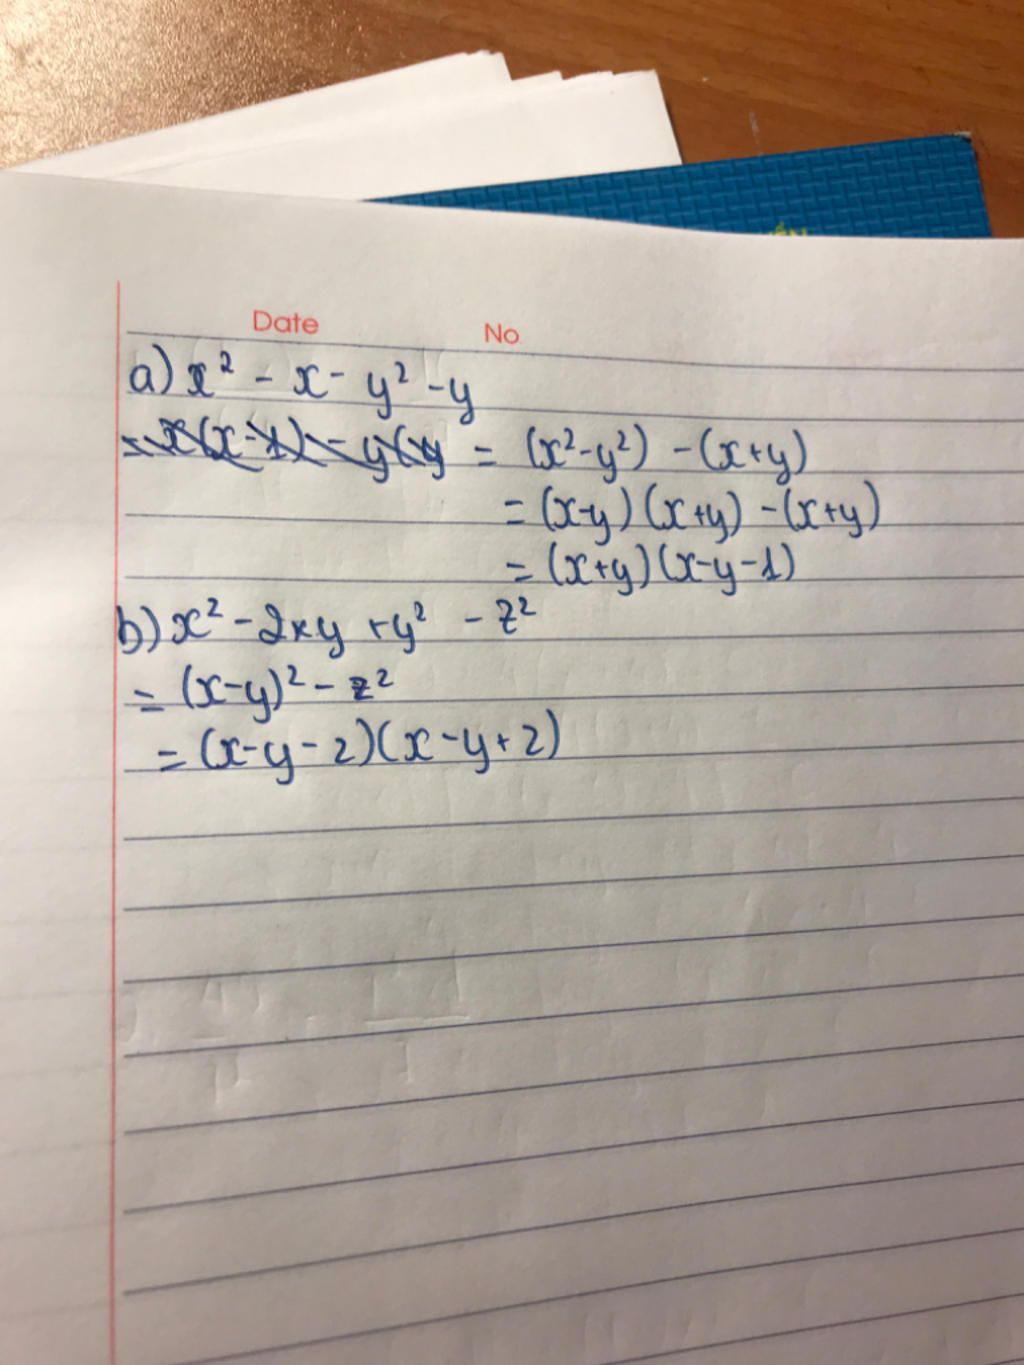 Date No
a) x² - x - y² - y
= x(x-1) - y(y = (x²-y²) - (x+y)
= (x-y)(x+y) - (x+y)
= (x+y)(x-y-1)
b) x² - 2xy + y² - z²
= (x-y)² - z²
= (x-y-2)(x-y+2)